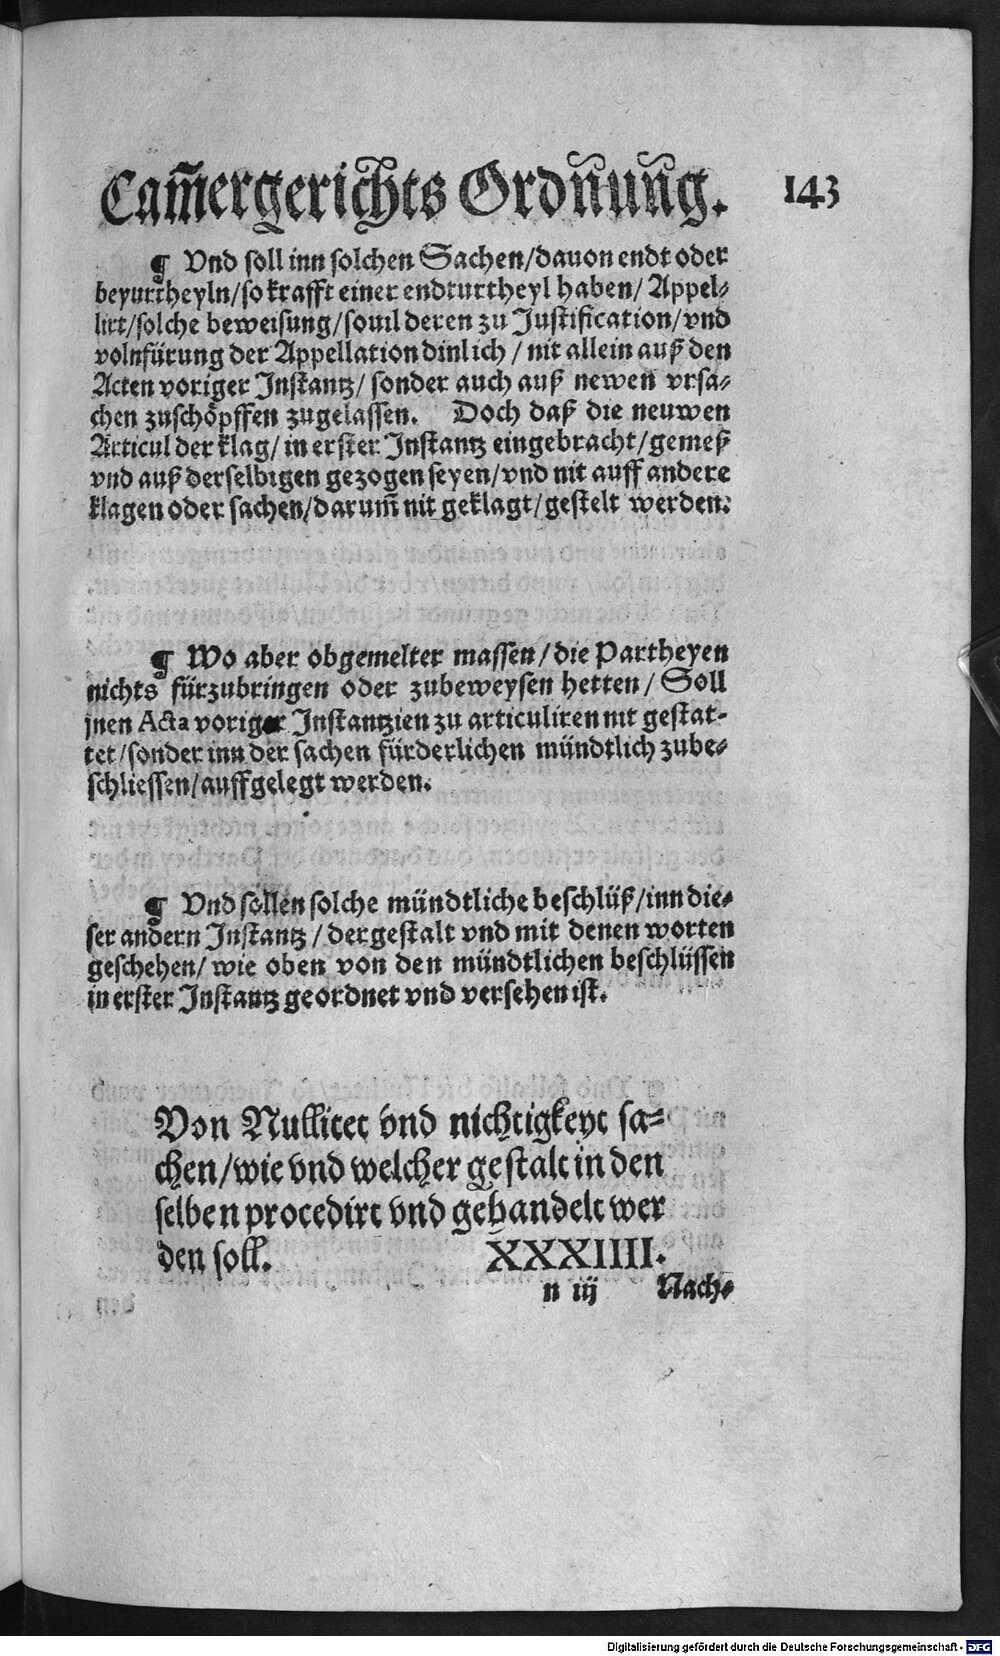 Cam̄ergerichts Ordnūūg. 143
¶ Vnd soll inn solchen Sachen/dauon endt oder
beyurtheyln/so krafft einer endturtheyl haben/ Appel-
lirt/solche beweisung/souil deren zu Justification/vnd
volnfürung der Appellation dinlich / nit allein auß den
Acten voriger Instantz/ sonder auch auß newen vrsa-
chen zuschöpffen zugelassen. Doch daß die neuwen
Articul der klag/ in erster Instantz eingebracht/gemeß
vnd auß derselbigen gezogen seyen/vnd nit auff andere
klagen oder sachen/darum̄ nit geklagt/gestelt werden:
¶ Wo aber obgemelter massen/die Partheyen
nichts fürzubringen oder zubeweysen hetten/ Soll
jnen Acta voriger Instantzien zu articuliren nit gestat-
tet/sonder inn der sachen fürderlichen mündtlich zube-
schliessen/auffgelegt werden.
¶ Vnd sollen solche mündtliche beschlüß/inn die-
ser andern Instantz/ dergestalt vnd mit denen worten
geschehen/ wie oben von den mündtlichen beschlüssen
in erster Instantz geordnet vnd versehen ist.
Von Nullitet vnd nichtigkeyt sa-
chen/wie vnd welcher gestalt in den
selben procedirt vnd gehandelt wer
den soll. XXXIIII.
n iij Nach-
Digitalisierung gefördert durch die Deutsche Forschungsgemeinschaft - DFG